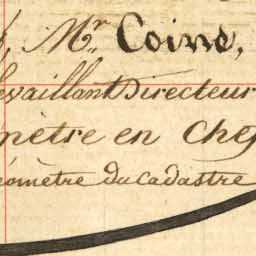 , Mr. Coire,
levaillant Directeur
mètre en Chef
éomètre du Cadastre